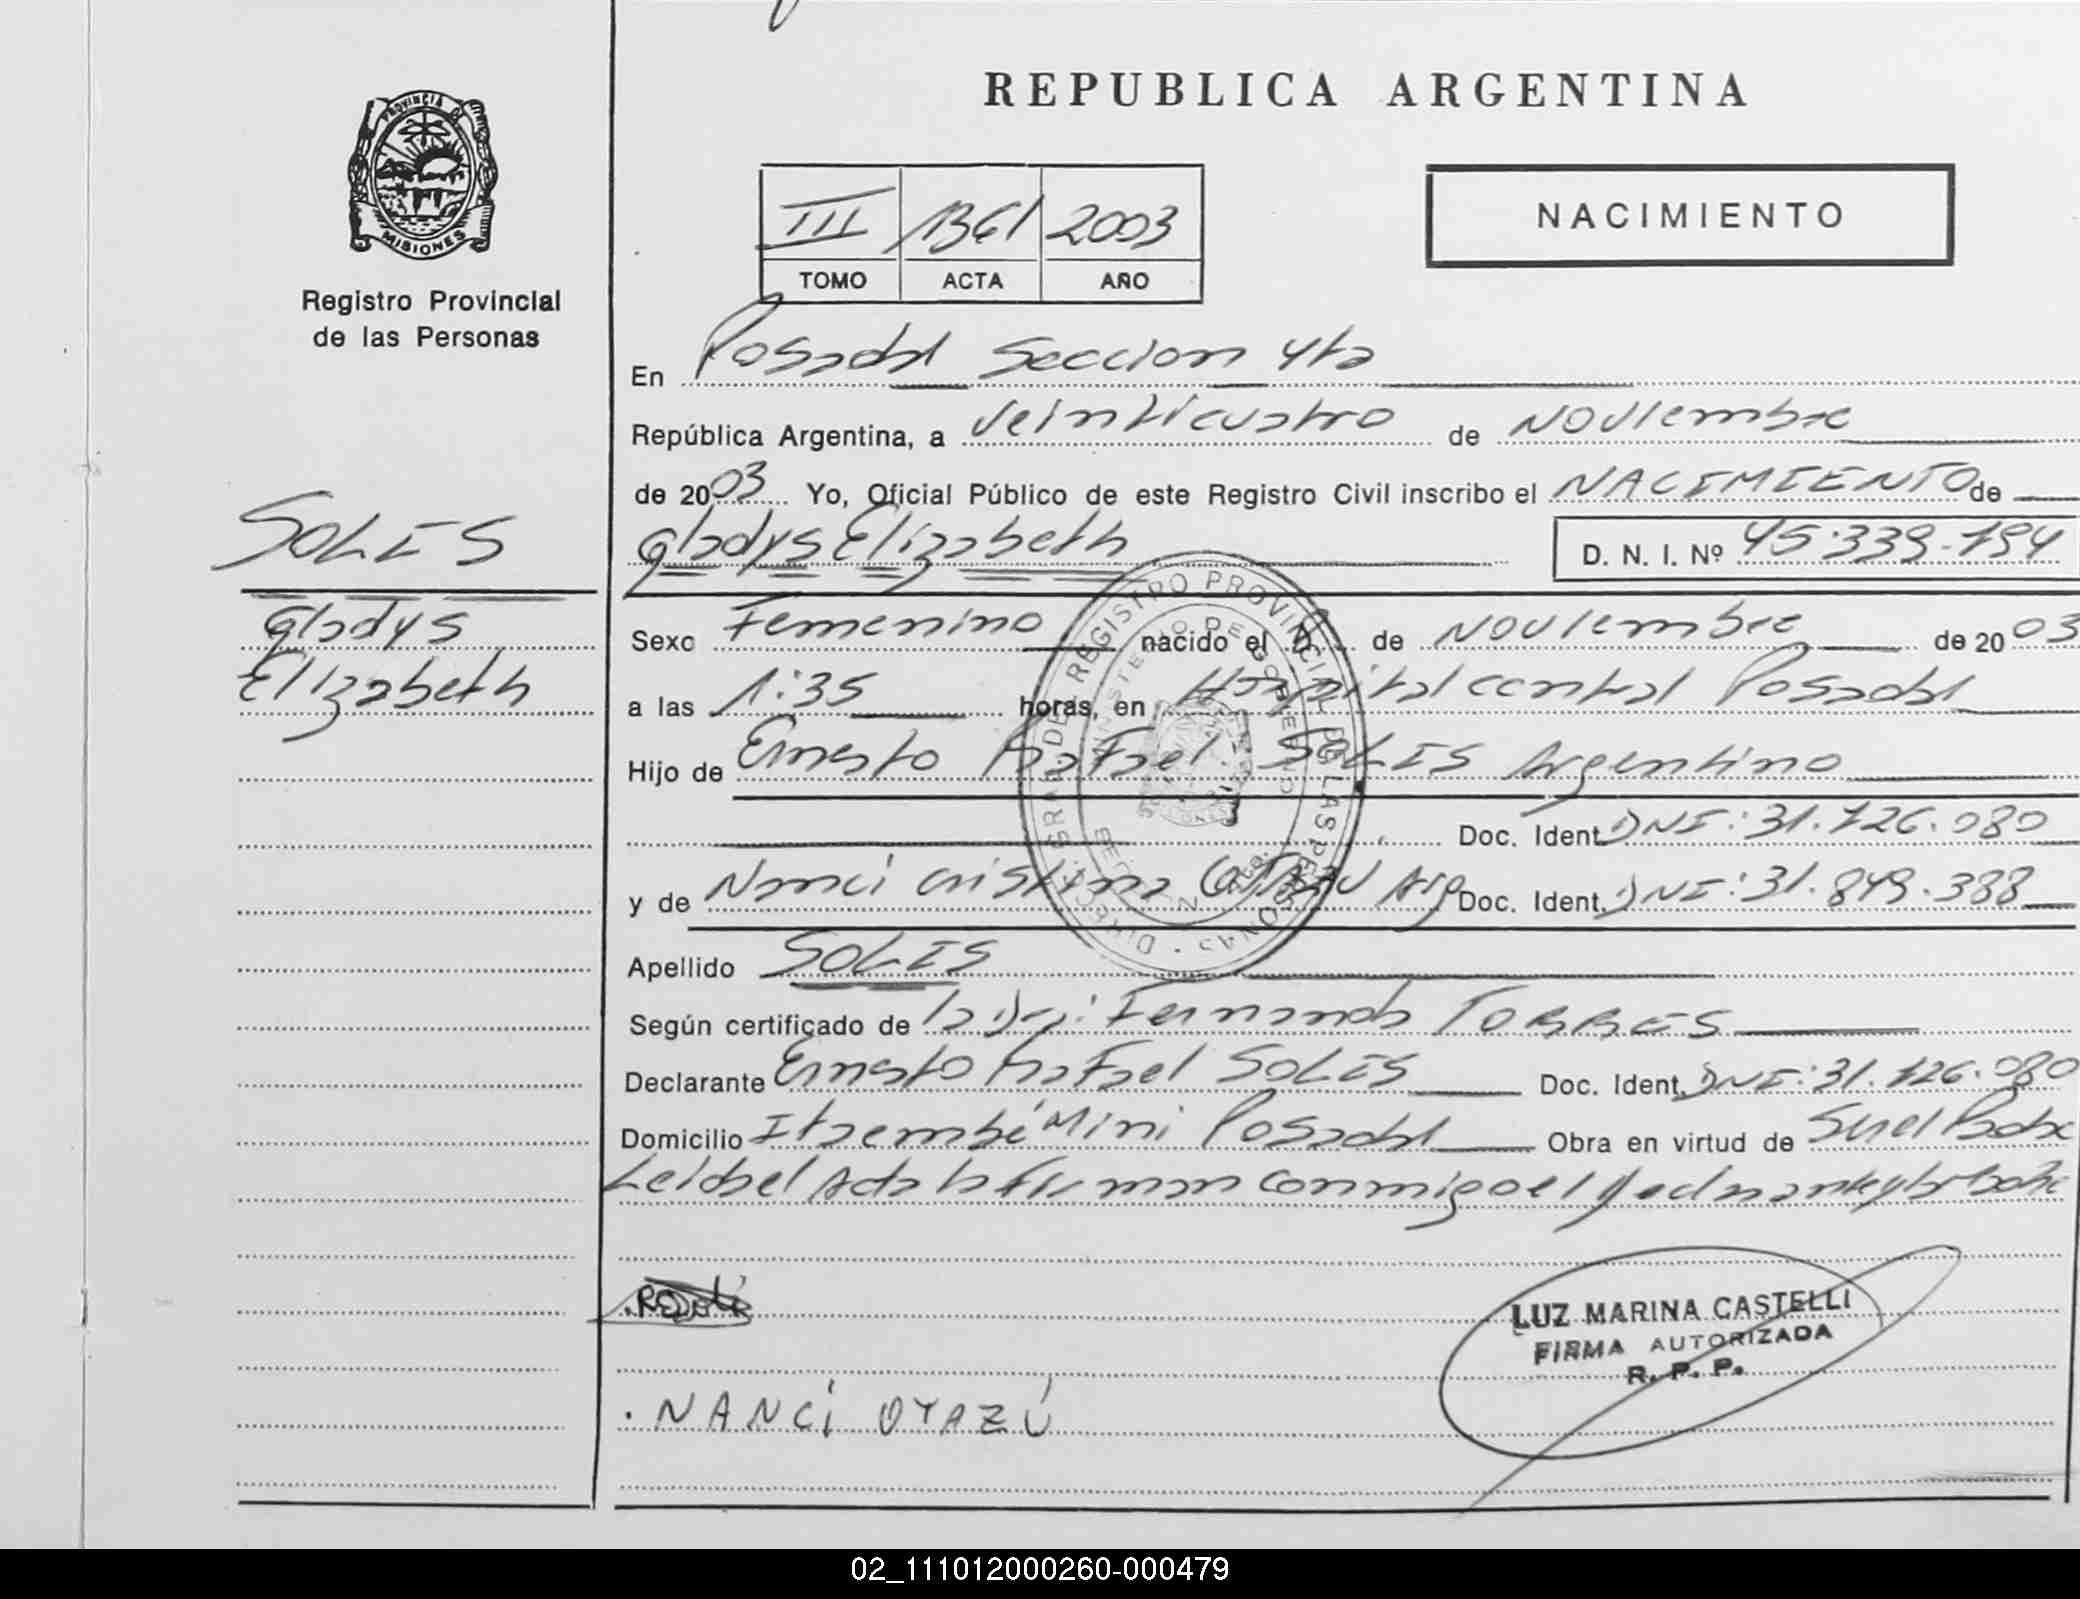 REPUBLICA ARGENTINA
PROVINCIA DE
MISIONES
Registro Provincial
de las Personas
III 1361 2003
TOMO ACTA AÑO
NACIMIENTO
En Posadas Seccion 4ta
República Argentina, a Veinticuatro de Noviembre
de 2003 Yo, Oficial Público de este Registro Civil inscribo el NACIMIENTO de
Gladys Elizabeth D. N. I. Nº 45.339.794
SOLIS
Gladys
Elizabeth
Sexo Femenino nacido el de Noviembre de 2003
a las 1:35 horas, en Hospital central Posadas
Hijo de Ernesto Rafael SOLIS Argentino
Doc. Ident. DNI: 31.726.080
y de Nanci Cristina Arg Doc. Ident. DNI: 31.849.388
Apellido SOLIS
Según certificado de la Dra: Fernanda TORRES
Declarante Ernesto Rafael SOLIS Doc. Ident. DNI: 31.726.080
Domicilio Itaembé Mini Posadas Obra en virtud de Ser el Padre
Leida el Acta la Firman conmigo el
NANCi OYAZÚ
LUZ MARINA CASTELLI
FIRMA AUTORIZADA
R. P. P.
02_111012000260-000479